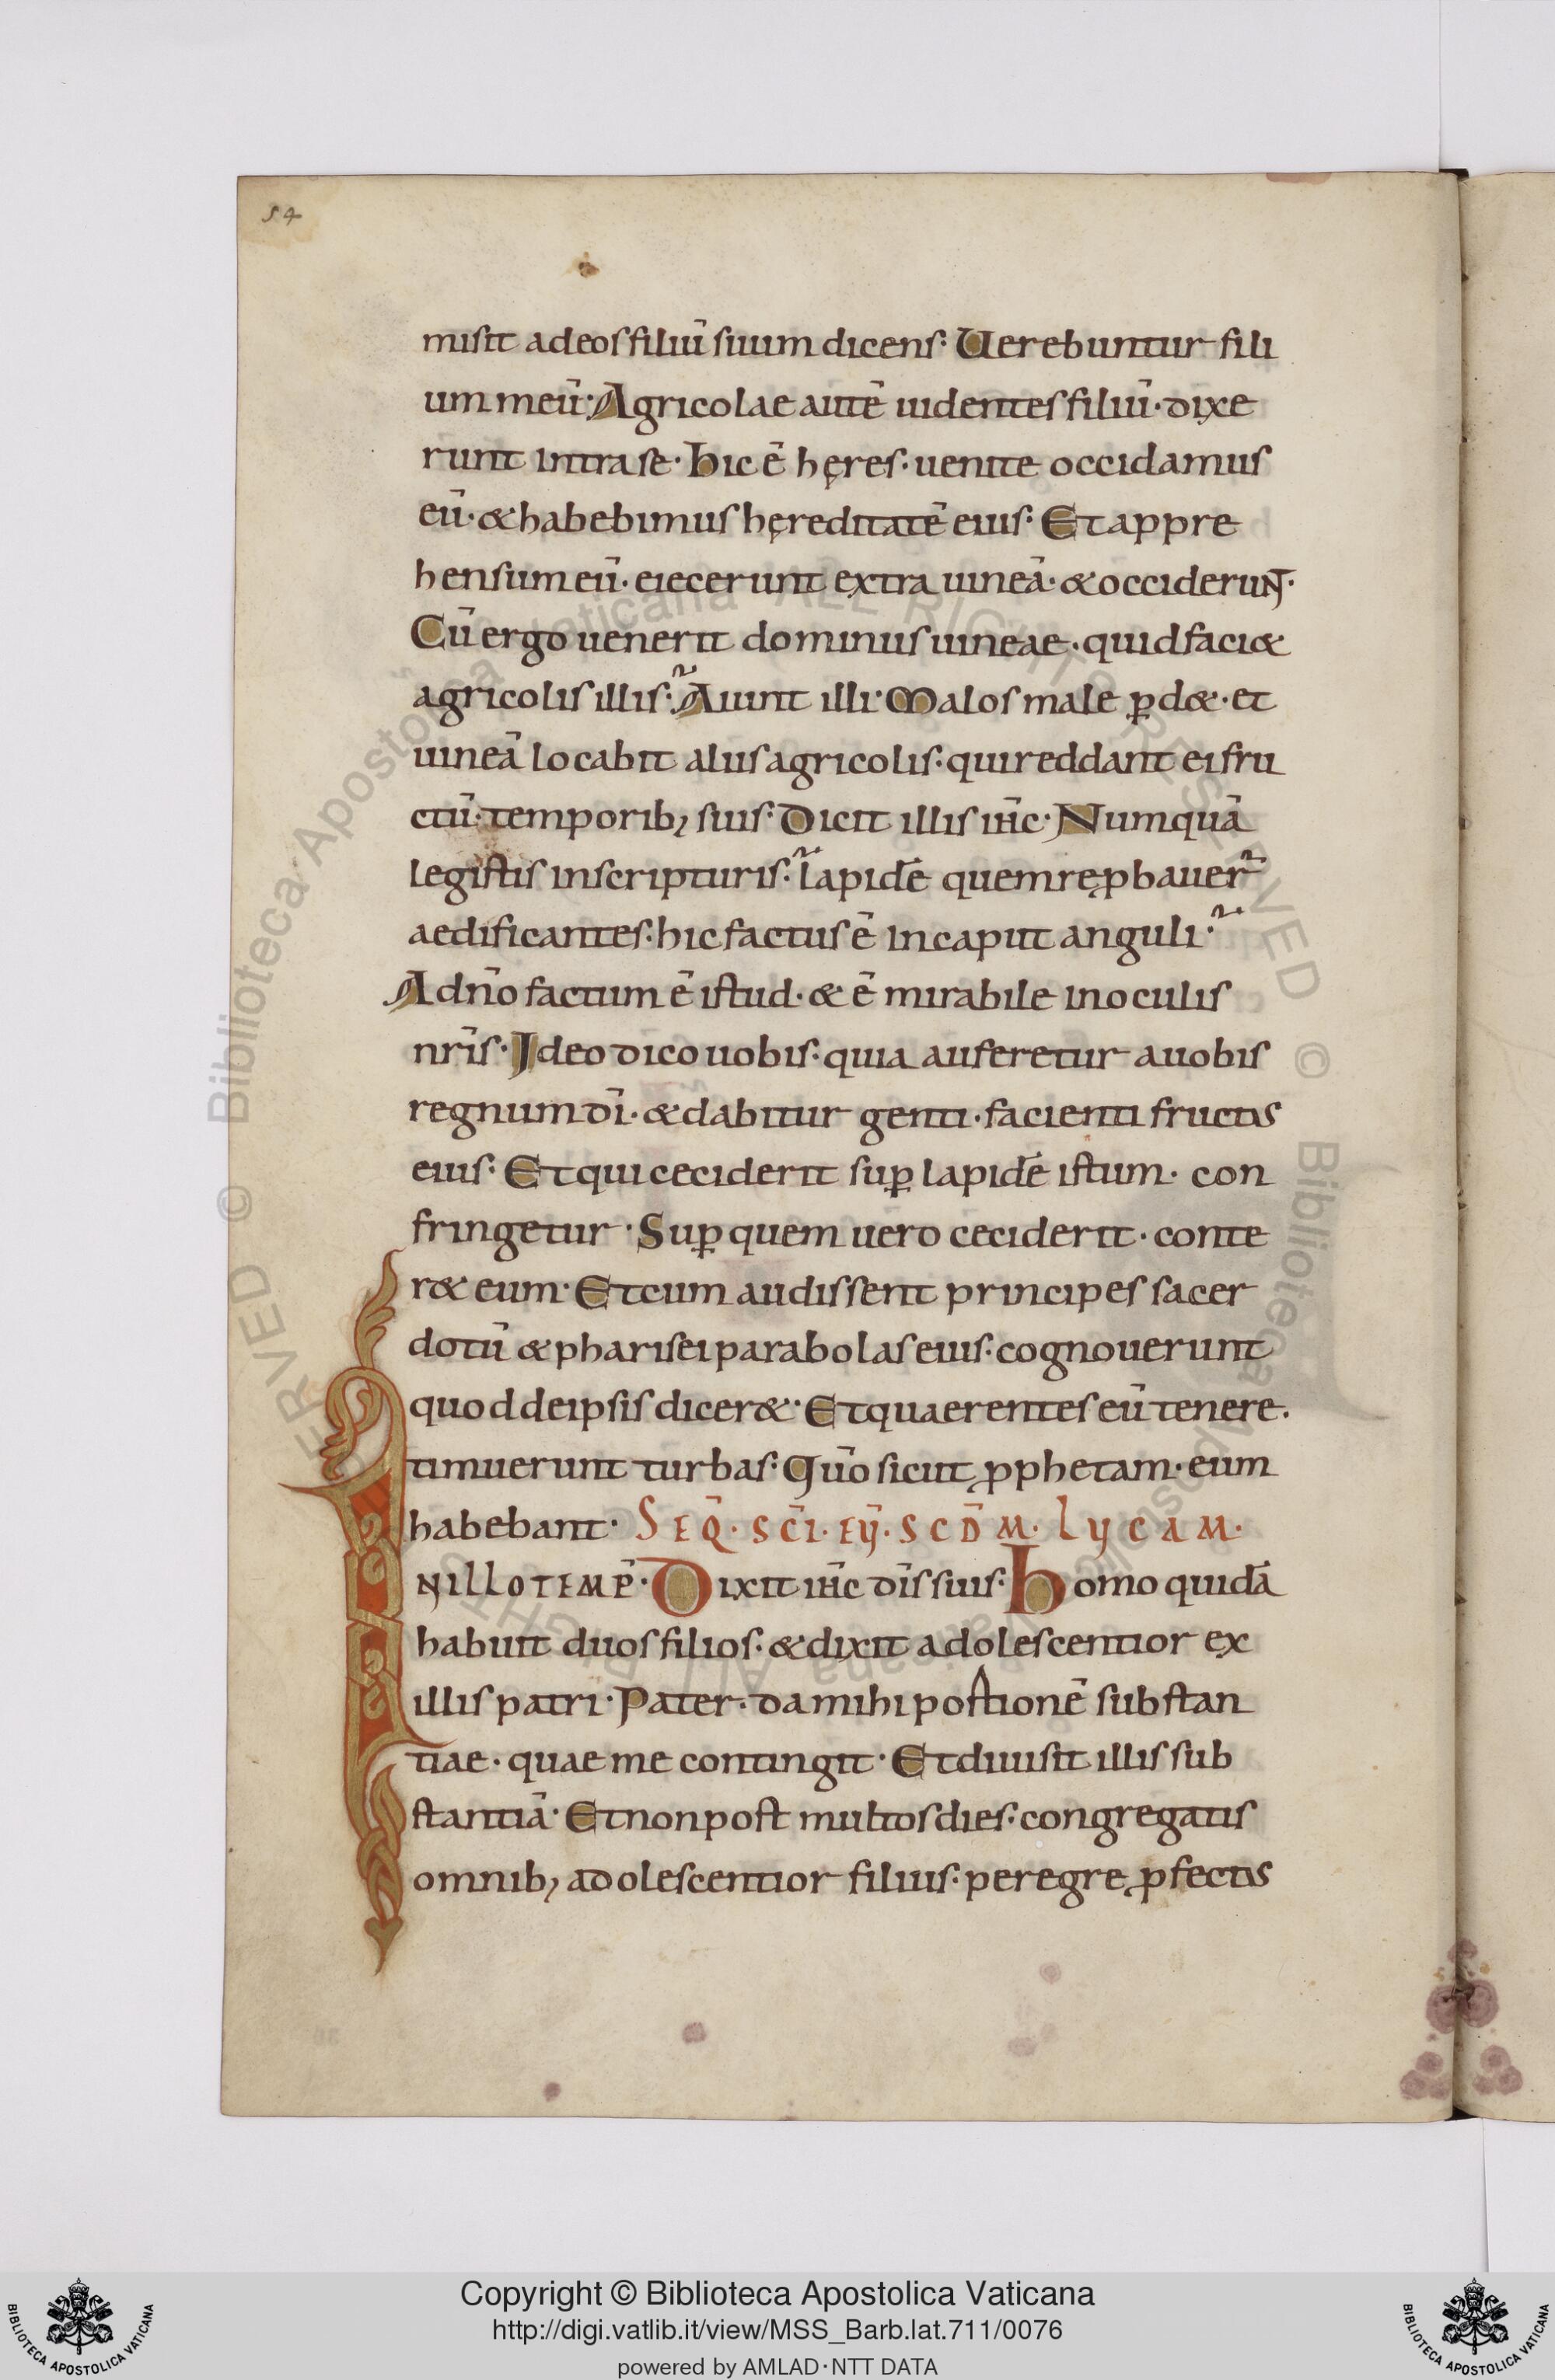 54
misit adeos filiū suum dicens· Uerebuntur fili
um meū· Agricolae autē uidentes filiū· dixe
runt intra se· Hic ē hęres· uenite occidamus
eū· &habebimus hęreditatē eius· Et appre
hensum eū· eiecerunt extra uineā· &occiderunt·
Cū ergo uenerit dominus uineae· quid faci&
agricolis illis· Aiunt illi· Malos male ꝑd&· et
uineā locabit aliis agricolis· qui reddant ei fru
ctū· temporib; suis· Dicit illis ih̄c· Numquā
legistis inscripturis· lapidē quem reꝓbauer̄
aedificantes· hic factus ē incaput anguli·
Adn̄o factum ē istud· & ē mirabile inoculis
nr̄is· Ideo dico uobis· quia auferetur auobis
regnum dī· &dabitur genti· facienti fructus
eius· Et qui ceciderit suꝑ lapidē istum· con
fringetur· Suꝑ quem uero ceciderit· conte
r& eum· Et cum audissent principes sacer
dotū & pharisei parabolas eius· cognouerunt
quod deipsis dicer&· Et quaerentes eū tenere·
timuerunt turbas· Qūo sicut ꝓphetam· eum
habebant· SEQ̄· SC̄I· EỤ̄· SCD̄M· LUCAM·
INILLO TEMP̄· Dixit ih̄c dīs suis· Homo quidā
habuit duos filios· &dixit adolescentior ex
illis patri· Pater· da mihi portionē substan
tiae· quae me contingit· Et diuisit illis sub
stantiā· Et non post multos dies· congregatis
omnib; adolescentior filius· peregre ꝓfectus
© Biblioteca Apostolica Vaticana ALL RIGHTS RESERVED
Copyright © Biblioteca Apostolica Vaticana
http://digi.vatlib.it/view/MSS_Barb.lat.711/0076
powered by AMLAD·NTT DATA
BIBLIOTECA APOSTOLICA VATICANA
BIBLIOTECA APOSTOLICA VATICANA